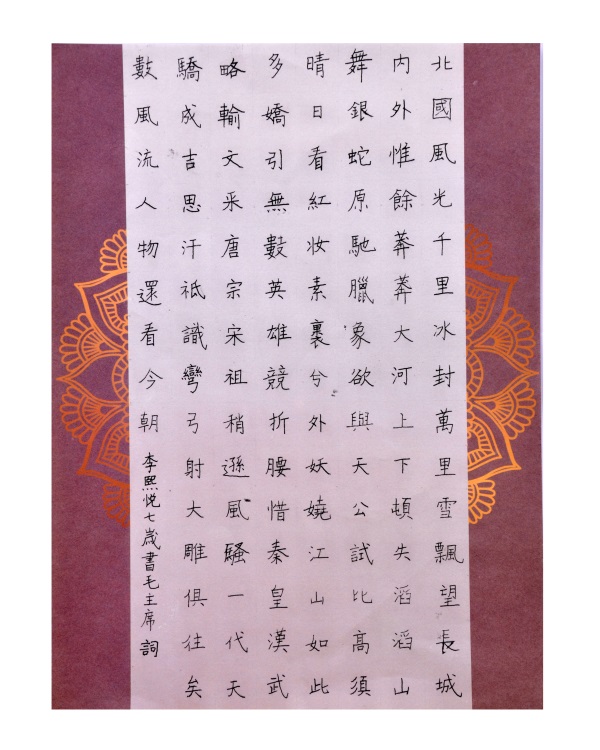 北國風光千里冰封萬里雪飄望長城
内外惟餘莽莽大河上下頓失滔滔山
舞銀蛇原馳臘象欲與天公試比高須
晴日看紅妆素裹兮外妖嬈江山如此
多嬌引無數英雄競折腰惜秦皇漢武
略輸文采唐宗宋祖稍遜風騷一代天
驕成吉思汗祗識彎弓射大雕俱往矣
數風流人物還看今朝 李熙悅七歲書毛主席詞